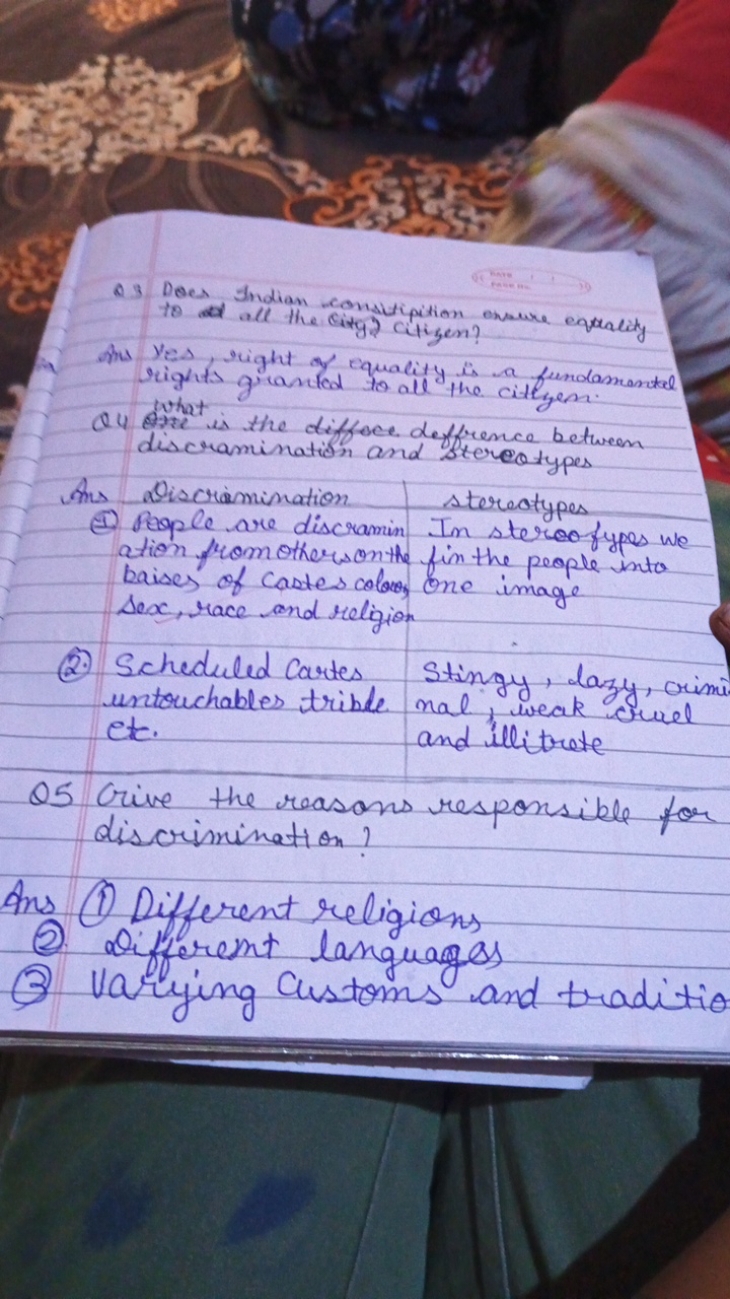 DATE / /
PAGE NO.
Q3 Does Indian constipition ensure equality
to all the citizen?
Ans Yes, right of equality is a fundamental
rights granted to all the citizen.
what
Q4 is the diffece deffrence between
discramination and stereotypes
Ans Discrimination stereotypes
① People are discramin In stereotypes we
ation from others on the fin the people into
baises of castes colores, one image
sex, race and religion
② Scheduled Castes Stingy, lazy, crimi
untouchables trible nal, weak cruel
etc. and illitrete
Q5 Give the reasons responsible for
discrimination?
Ans ① Different religions
② Different languages
③ Varying Customs and traditio